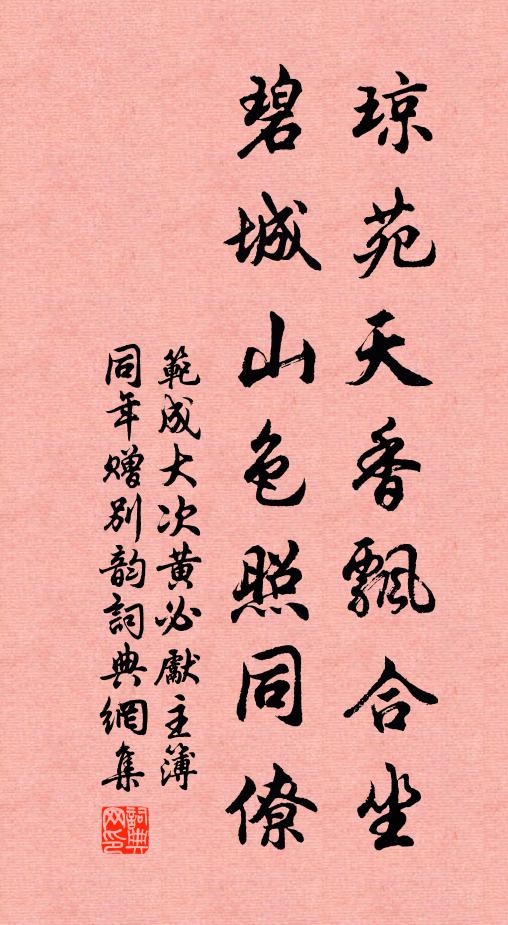 琼苑天香飄合坐
碧城山色照同僚
範成大次黄必獻主簿
同年赠别韵詞典網集
詞典网印